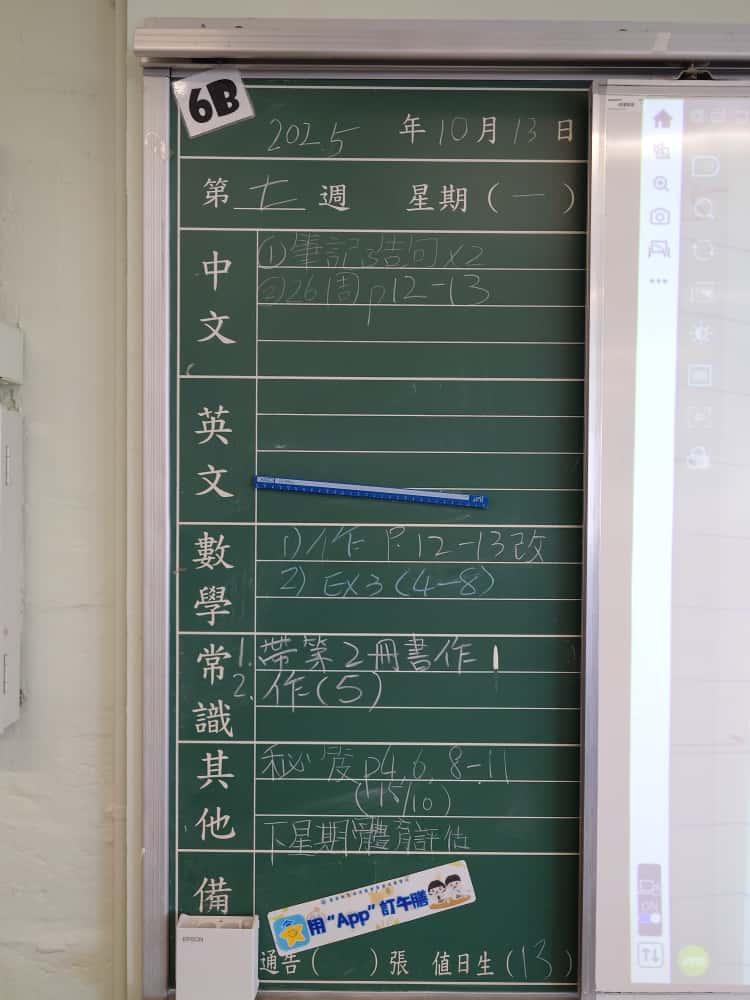 6B
2025 年 10 月 13 日
第 七 週 星期 ( 一 )
中文
① 筆記 3 告句 x2
② 26 周 p12-13
英文
數學
1) 作 P.12-13 改
2) EX3 (4-8)
常識
1. 帶第2冊書作
2. 作(5)
其他
秘 p4, 6, 8-11
(15/10)
下星期體育評估
備
用 “App” 訂午膳
EPSON
通告 ( ) 張 值日生 ( 13 )
ON